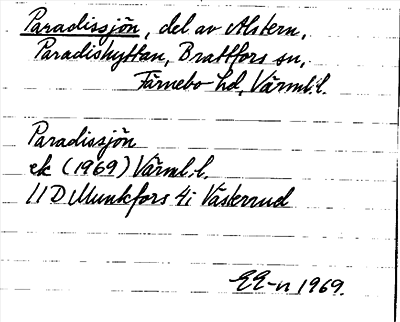 Paradissjön, del av Alstern,
Paradishyttan, Brattfors sn,
Färnebo hd, Värml. l.
Paradissjön
ek (1969) Värml. l.
11D Munkfors 4i Västerrud
EE-n 1969.